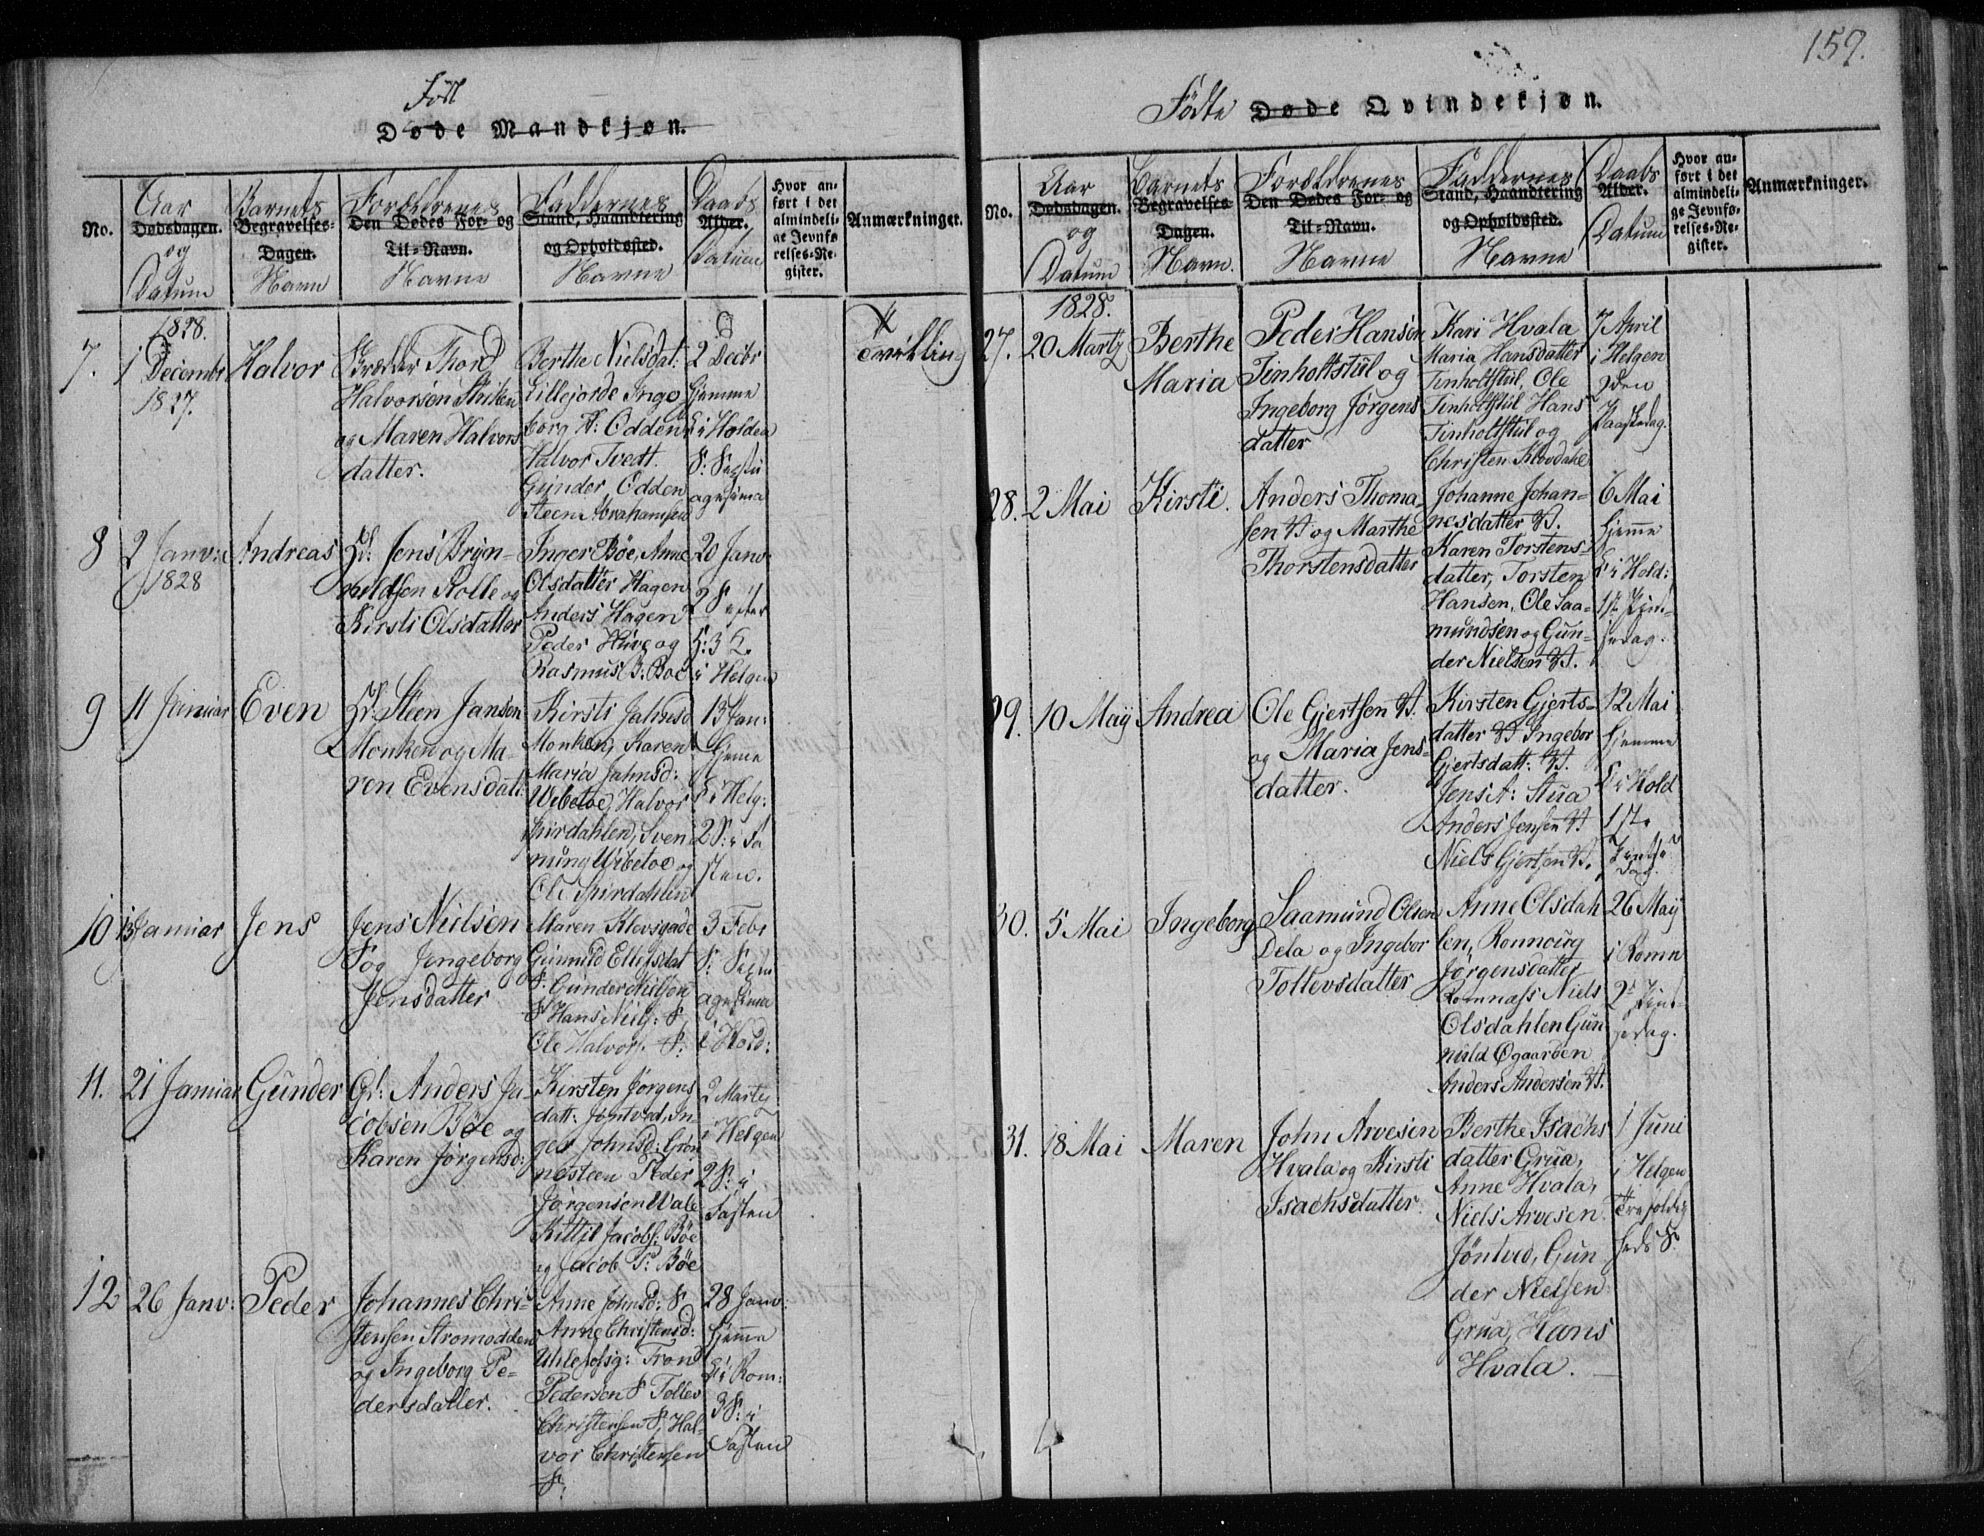 Født
Døde Mandkjøn.
No.
Aar
Dødsdagen.
og
Datum
Barnets
Begravelses-
Dagen.
Navn
Forældrenes
Den Dødes For- og
Til-Navn.
Navne
Faddernes
Stand, Haandtering
og Opholdssted.
Navne
Daabs
Alder.
Datum
Hvor an-
ført i det
almindeli-
ge Jevnfø
relses-Re-
gister.
Anmærkninger.
1828.
7.
1 Decembr
1827.
Halvor
Thord
Halvorsen
og Maren Halvors
datter.
Berthe Nielsdat:
Lillejorde Inge
borg A: Odden
Halvor Tvedt.
Gunder Odden
Steen Abrahamsen
2 Decbr
hjemme
i Holden
S: Septu
agesima
Tvilling
8
2 Janv:
1828
Andreas
Jens Bryn-
nildsen Rolle og
Kirsti Olsdatter
Inger Bøe Anne
Olsdatter Hagen
Anders Hagen
Peder Hüve og
Rasmus B. Boe
20 Janv
2 S
i Helgen
9
11 Januar
Even
Steen Jansen
Monken og Ma-
ren Evensdatt:
Kirsti Jahnsd
Monken, Karen
Maria Jahnsd:
Wibetoe, Halvor
Skirdahlen, Sven
nüng Wibetoe og
Ole Skirdahlen
13 Jan:
hjeme
i Helg:
2 S: i Fa
sten.
10
13 Januar
Jens
Jens Nielsen
S og Jengeborg
Jensdatter
Maren Klevsgade
Gunnild Ellefsdat
S. Gunder Nielsen
S Hans Niels: S.
Ole Halvors. S:
3 Febr
S: Septu
agesima
i Hold:
11.
21 Januar
Gunder
Gr: Anders Ja-
cobsen Bøe og
Karen Jørgensd:
Kirsten Jørgens
datt: Jøntved, In-
ger Johnsd: Grøn
nesteen Peder
Jørgensen Wale
Kittil Jacobs: Bøe
og Jacob P: Bøe
2 Marty
i Helgen
2 S: i
Fasten
12
26 Janv:
Peder
Johannes Chri-
stensen Stromodden
og Ingeborg Pe-
dersdatter.
Anne Johnsd: S
Anne Christensd:
Uhlefosg: Trond
Pedersen S Tollev
Christensen S, Hal-
vor Christensen
S.
28 Janv:
hjeme
i Rom:
3 S: i
Fasten
159.
Fødte Døde Qvindekjøn.
No.
Aar
Dødsdagen.
og
Datum
Barnets
Begravelses
Dagen.
Navn.
Forældrenes
Den Dødes For- og
Til-Navn.
Navne
Faddernes
Stand, Haandtering
og Opholdssted.
Navne
Daabs
Alder.
Datum
Hvor an-
ført i det
almindeli-
ge Jevnfø-
relses-Re-
gister.
Anmærkninger.
1828.
27.
20 Marty
Berthe
Maria
Peder Hansen
Tinholtstül og
Ingeborg Jørgens
datter
Kari Hvala
Maria Hansdatter
Tinholtstül, Ole
Tinholtstül Hans
Tinholtstül og
Christen Klovdahl
7 April
i Helgen
2den
Paaskedag.
28.
2 Mai
Kirsti.
Anders Thoma-
sen og Marthe
Thorstensdatter
Johanne Johan-
nesdatter
Karen Torstens-
datter, Torsten
Hansen, Ole Saa-
mundsen og Gun-
der Nielsen
6 Mai
hjeme
i Hold:
1ste Pint-
sedag.
29.
10 May
Andrea
Ole Gjertsen
og Maria Jens-
datter.
Kirsten Gjerts-
datter Ingebor
Gjertsdatt:
Jens A: Stua
Anders Jensen
Niels Gjertsen
12 Mai
hjemme
i Hold
1ste
Pintse
dag.
30.
5 Mai
Ingeborg
Saamund Olsen
Dela og Ingebor
Tollevsdatter
Anne Olsdah
len, Ronnoug
Jørgensdatter
Romnass Niels
Olsdahlen Gun
nild Øgaarden
Anders Andersen
26 May
i Romn
2d Pint-
sedag.
31.
18 Mai
Maren
John Arvesen
Hvala og Kirsti
Isachsdatter.
Berthe Isachs
datter Grua,
Anne Hvala,
Niels Arvesen
Jøntved, Gun
der Nielsen
Grua, Hans
Hvala.
1 Juni
i Helgen
Trefoldig
heds S.